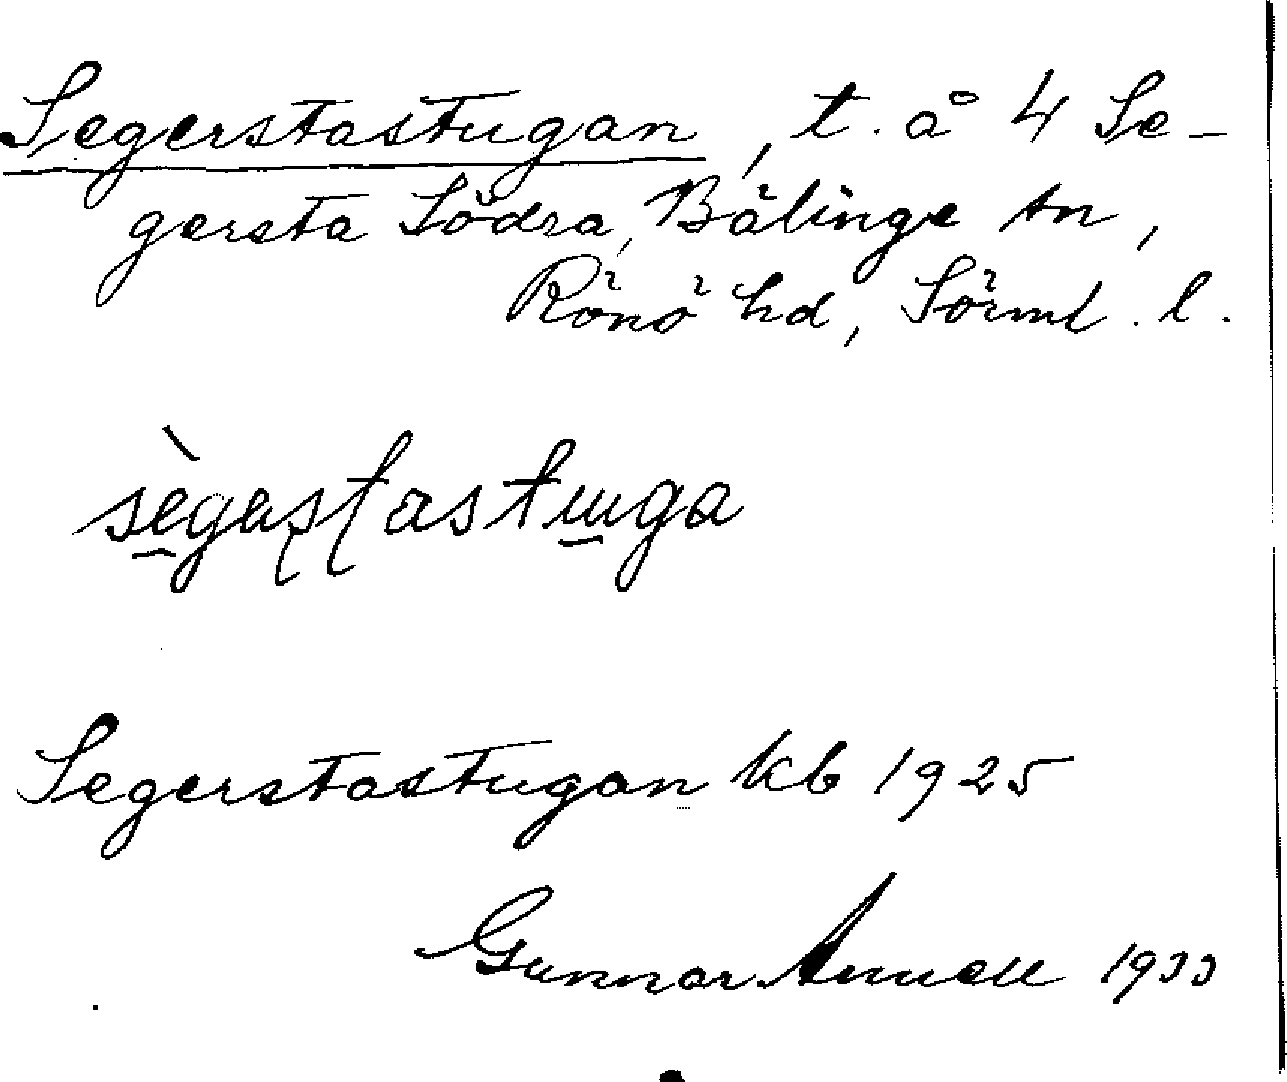 Segerstastugan, t. å 4 Se-
gersta Södra, Bälinge sn,
Rönö hd, Sörml. l.
sègastastuga
Segerstastugan kb 1925
Gunnar Annell 1933